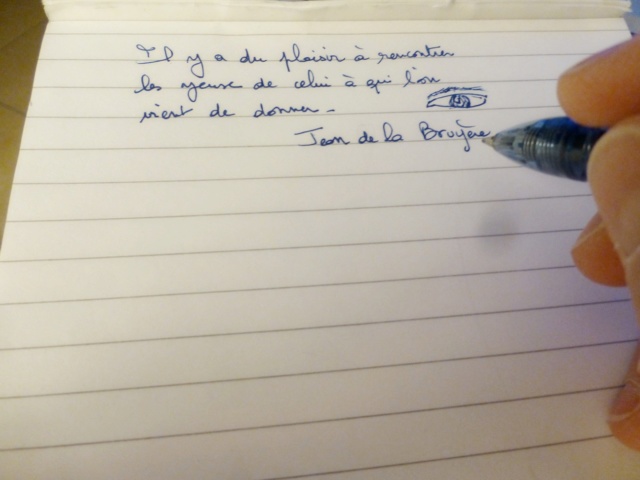 Il y a du plaisir à rencontrer
les yeux de celui à qui l'on
vient de donner.
Jean de la Bruyère